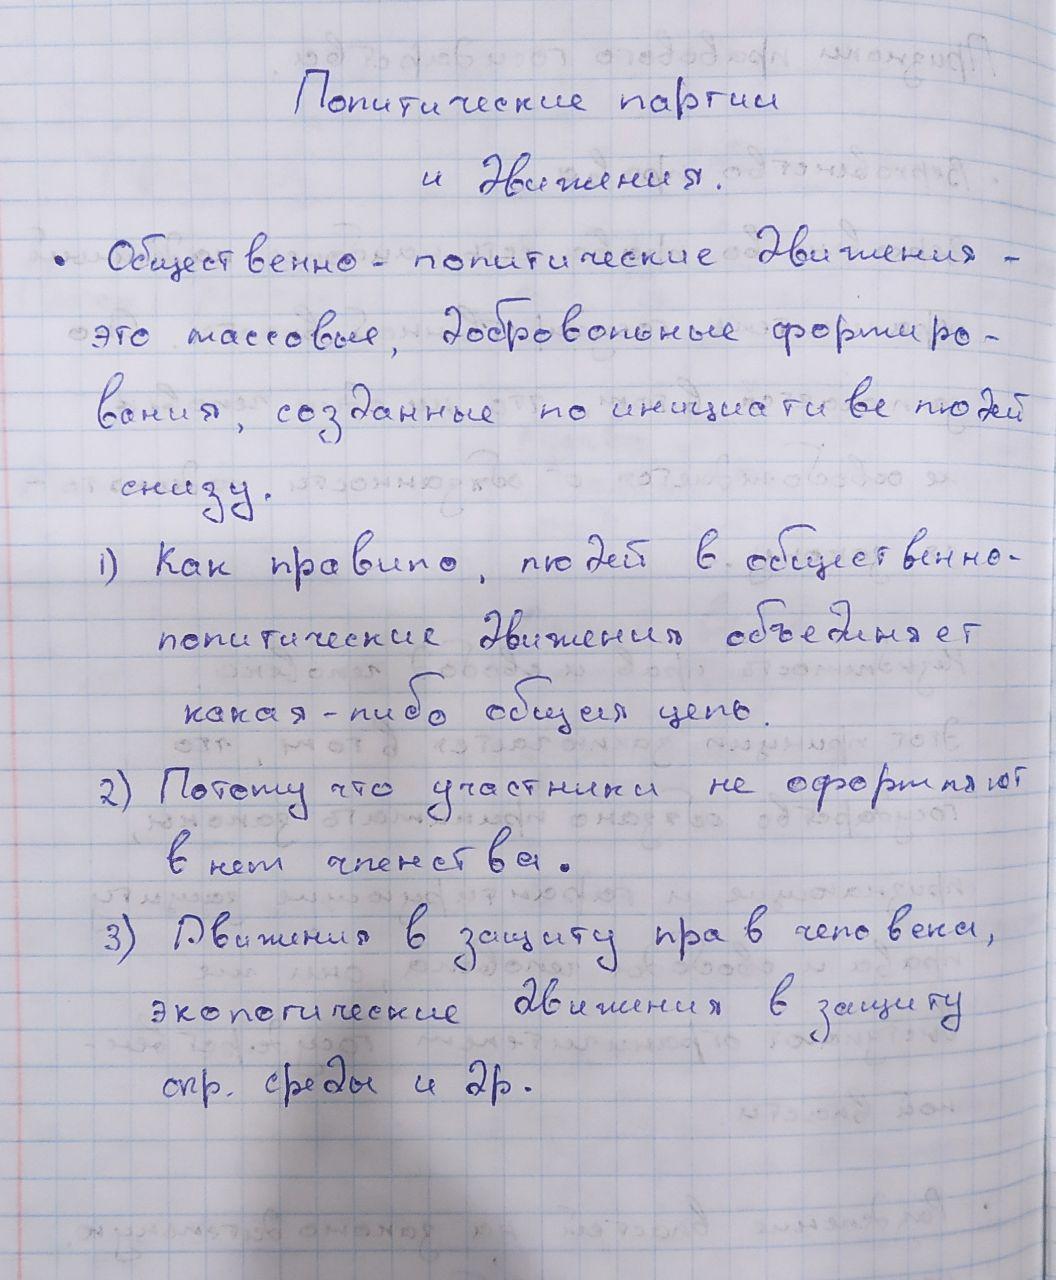 Политические партии
и движения.
• Общественно - политические движения -
это массовые, добровольные формиро-
вания, созданные по инициативе людей
снизу.
1) Как правило, людей в общественно-
политические движения объединяет
какая-либо общая цель.
2) Потому что участники не оформляют
в нем членства.
3) Движения в защиту прав человека,
экологические движения в защиту
окр. среды и др.